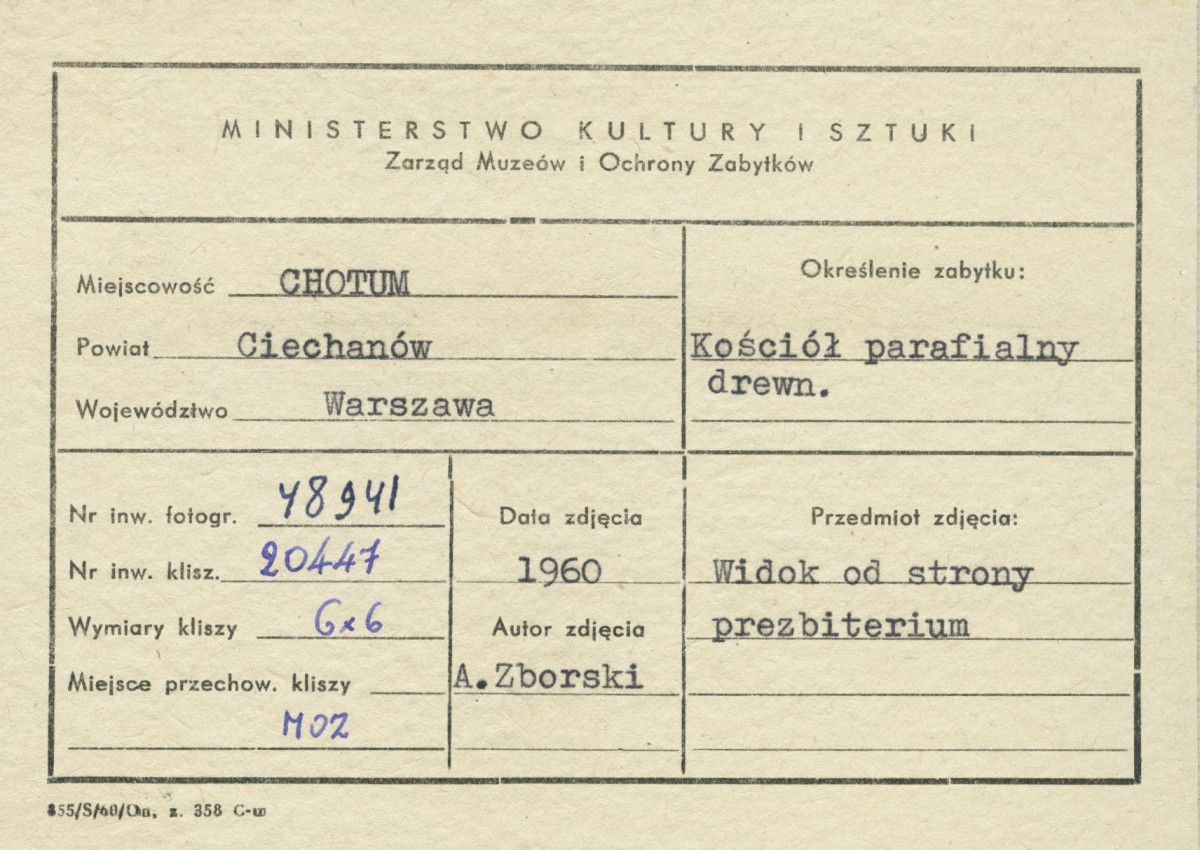 MINISTERSTWO KULTURY I SZTUKI
Zarząd Muzeów i Ochrony Zabytków
Miejscowość CHOTUM
Powiat Ciechanów
Województwo Warszawa
Określenie zabytku:
Kościół parafialny
drewn.
Nr inw. fotogr. 48941
Nr inw. klisz. 20447
Wymiary kliszy 6x6
Miejsce przechow. kliszy
MOZ
Data zdjęcia
1960
Autor zdjęcia
A.Zborski
Przedmiot zdjęcia:
Widok od strony
prezbiterium
855/S/60/On, z. 358 C-w